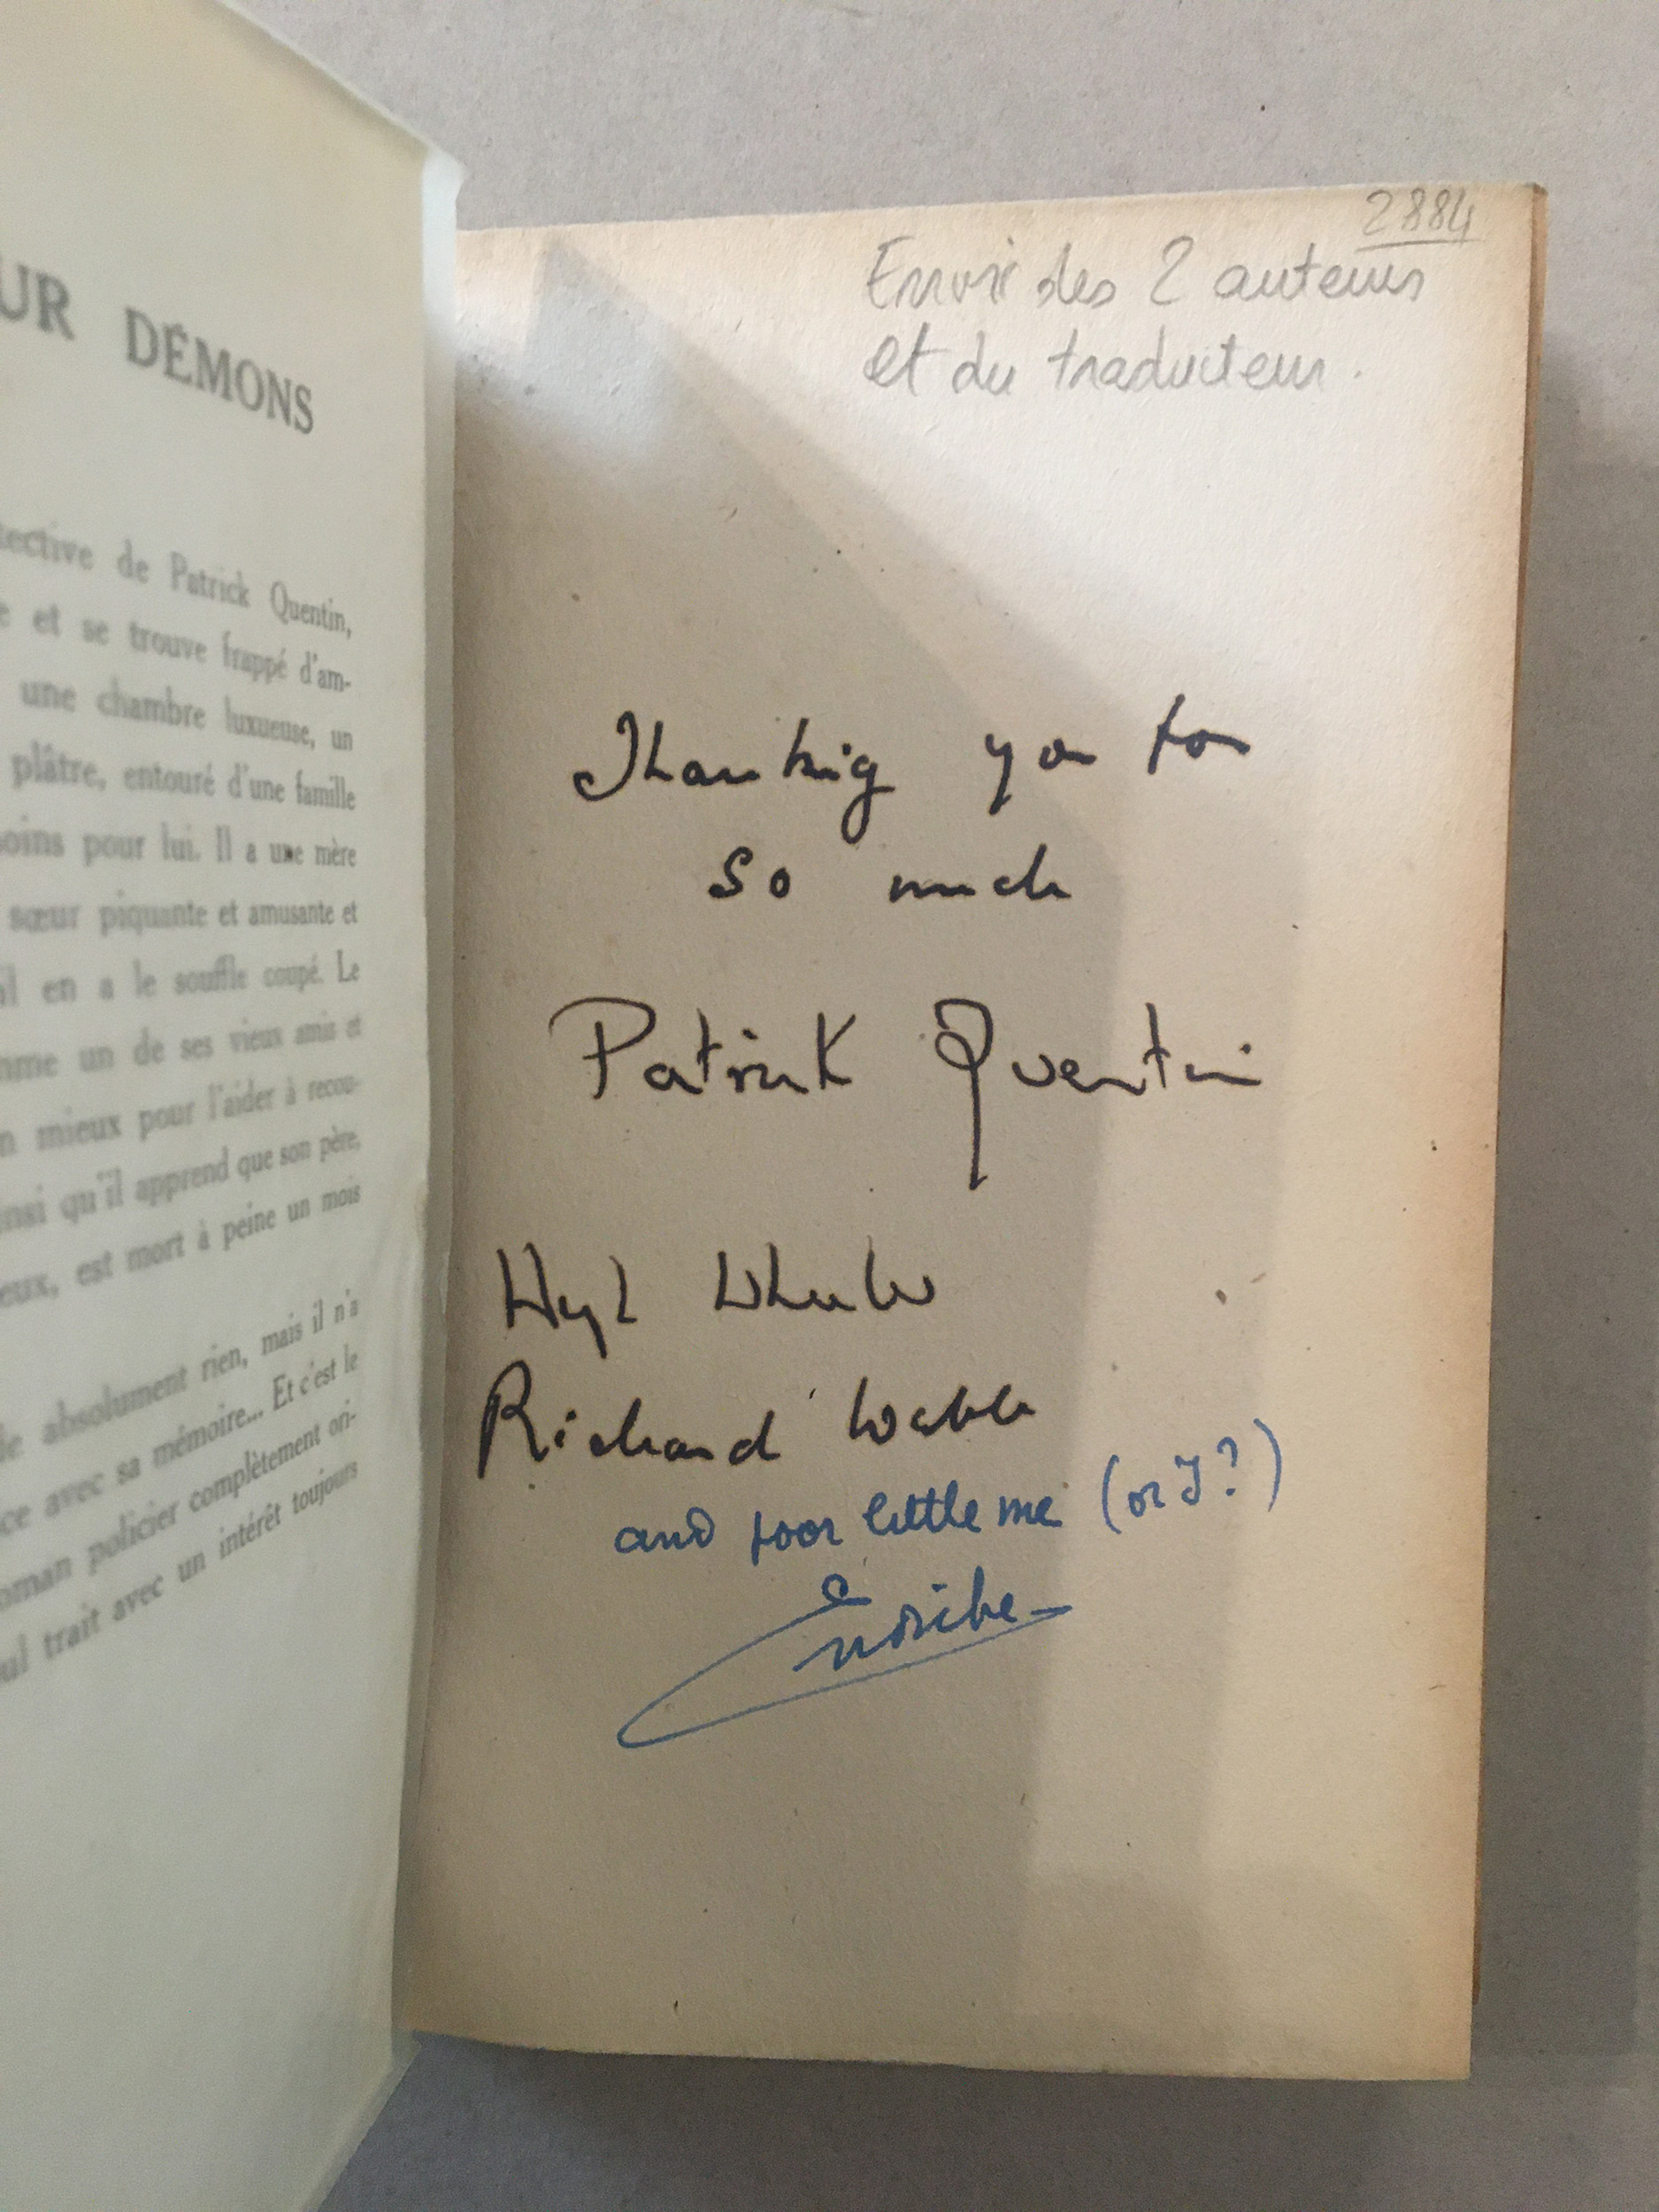 UR DÉMONS
tective de Patrick Quentin,
e et se trouve frappé d'am-
une chambre luxueuse, un
plâtre, entouré d'une famille
soins pour lui. Il a une mère
sœur piquante et amusante et
il en a le souffle coupé. Le
mme un de ses vieux amis et
n mieux pour l'aider à recou-
insi qu'il apprend que son père,
eux, est mort à peine un mois
le absolument rien, mais il n'a
ce avec sa mémoire... Et c'est le
oman policier complètement ori-
ul trait avec un intérêt toujours
2884
Envoi des 2 auteurs
et du traducteur.
Thanking you for
so much
Patrick Quentin
Hugh Wheeler
Richard Webb
and poor little me (or I?)